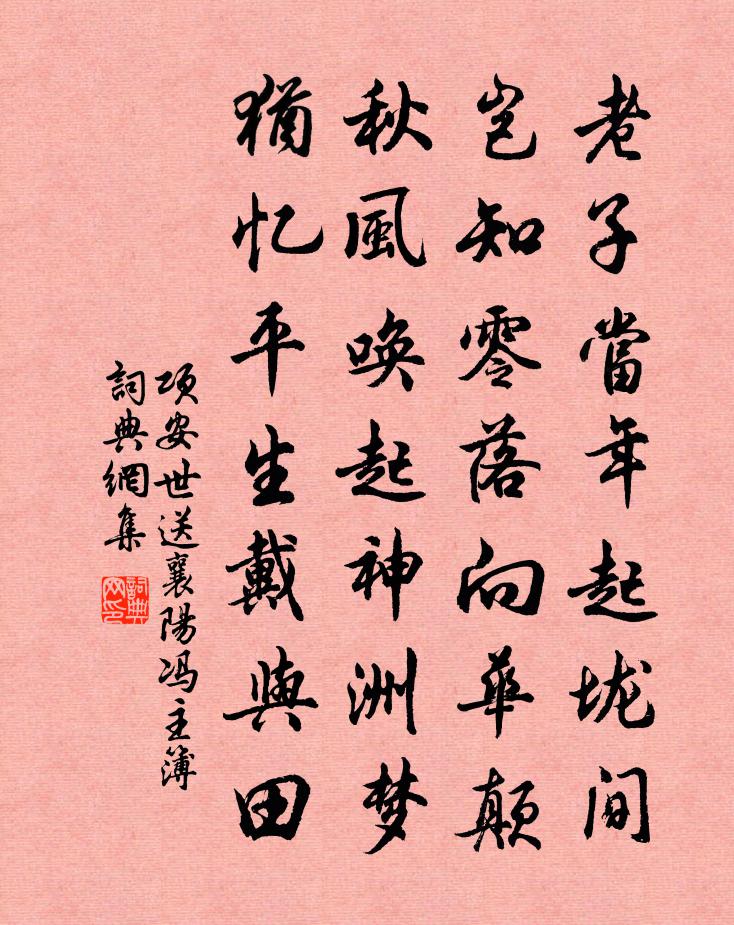 老子當年起垅间
岂知零落向華颠
秋風唤起神洲梦
猶忆平生戴與田
项安世送襄陽冯主簿
詞典網集
詞典网印